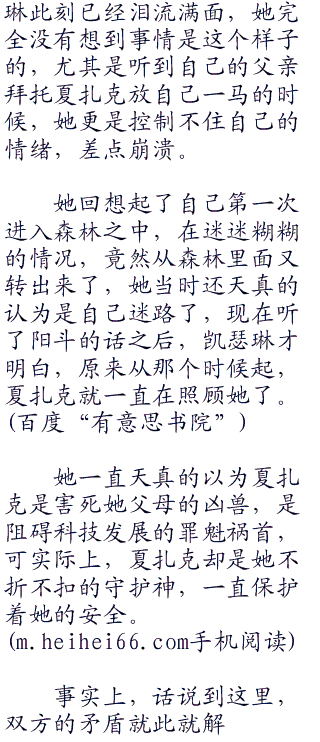 琳此刻已经泪流满面，她完
全没有想到事情是这个样子
的，尤其是听到自己的父亲
拜托夏扎克放自己一马的时
候，她更是控制不住自己的
情绪，差点崩溃。
她回想起了自己第一次
进入森林之中，在迷迷糊糊
的情况，竟然从森林里面又
转出来了，她当时还天真的
认为是自己迷路了，现在听
了阳斗的话之后，凯瑟琳才
明白，原来从那个时候起，
夏扎克就一直在照顾她了。
(百度“有意思书院”)
她一直天真的以为夏扎
克是害死她父母的凶兽，是
阻碍科技发展的罪魁祸首，
可实际上，夏扎克却是她不
折不扣的守护神，一直保护
着她的安全。
(m.heihei66.com手机阅读)
事实上，话说到这里，
双方的矛盾就此就解